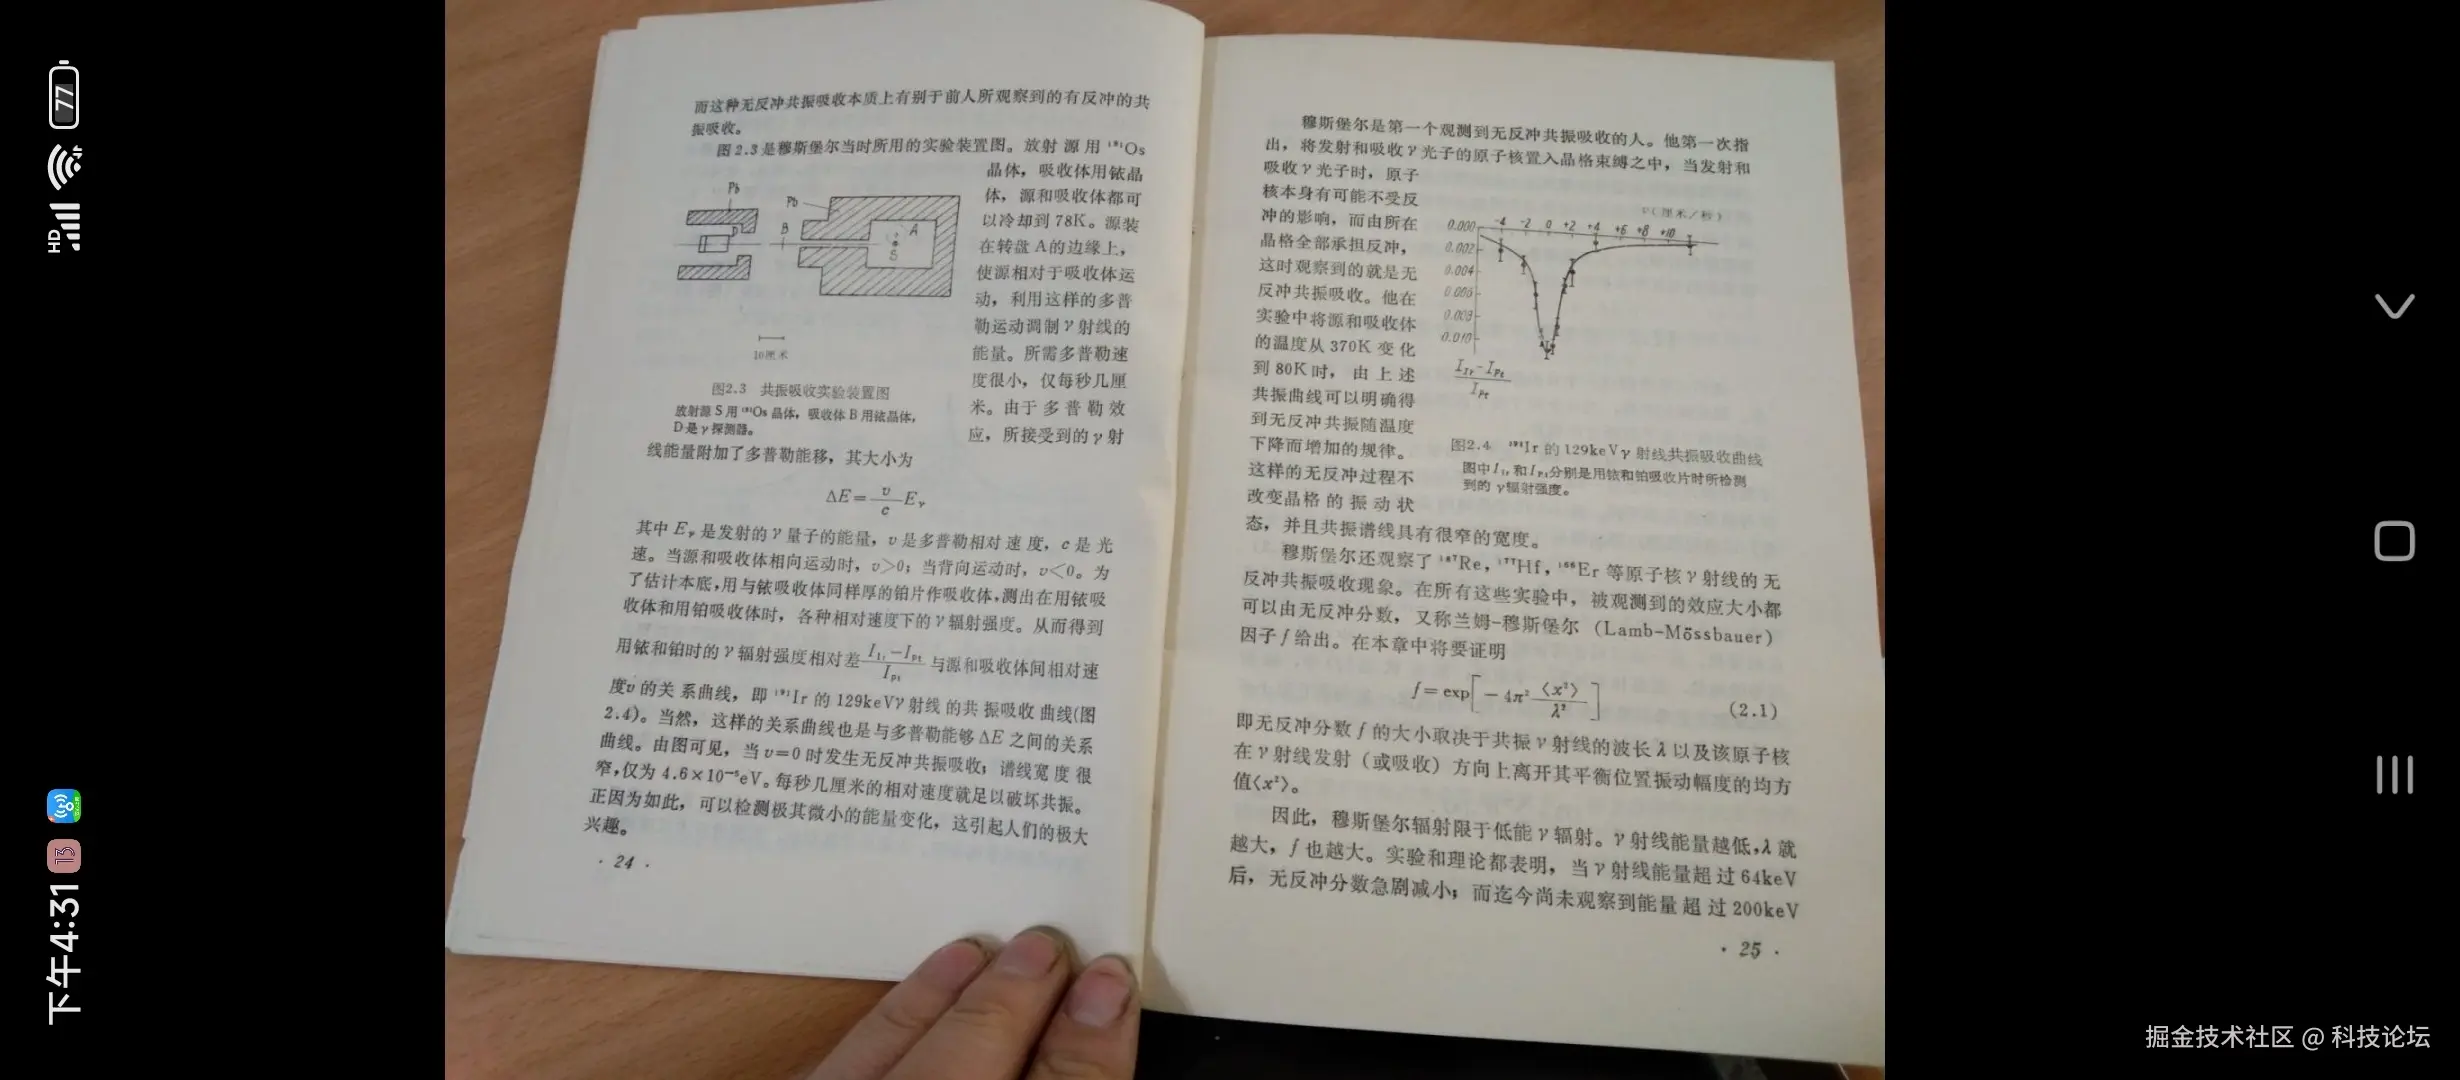 而这种无反冲共振吸收本质上有别于前人所观察到的有反冲的共
振吸收。
图2.3是穆斯堡尔当时所用的实验装置图。放射源用¹⁹¹Os
晶体，吸收体用铱晶
体，源和吸收体都可
以冷却到78K。源装
在转盘A的边缘上，
使源相对于吸收体运
动，利用这样的多普
勒运动调制γ射线的
能量。所需多普勒速
度很小，仅每秒几厘
米。由于多普勒效
应，所接受到的γ射
Pb
Pb
B
A
S
D
10厘米
图2.3 共振吸收实验装置图
放射源S用¹⁹¹Os晶体，吸收体B用铱晶体，
D是γ探测器。
线能量附加了多普勒能移，其大小为
ΔE=v/c Eγ
其中Eγ是发射的γ量子的能量，v是多普勒相对速度，c是光
速。当源和吸收体相向运动时，v>0；当背向运动时，v<0。为
了估计本底，用与铱吸收体同样厚的铂片作吸收体，测出在用铱吸
收体和用铂吸收体时，各种相对速度下的γ辐射强度。从而得到
用铱和铂时的γ辐射强度相对差(I_Ir−I_Pt)/I_Pt与源和吸收体间相对速
度v的关系曲线，即¹⁹¹Ir的129keVγ射线的共振吸收曲线(图
2.4)。当然，这样的关系曲线也是与多普勒能够ΔE之间的关系
曲线。由图可见，当v=0时发生无反冲共振吸收；谱线宽度很
窄，仅为4.6×10⁻⁵eV。每秒几厘米的相对速度就足以破坏共振。
正因为如此，可以检测极其微小的能量变化，这引起人们的极大
兴趣。
· 24 ·
穆斯堡尔是第一个观测到无反冲共振吸收的人。他第一次指
出，将发射和吸收γ光子的原子核置入晶格束缚之中，当发射和
吸收γ光子时，原子
核本身有可能不受反
冲的影响，而由所在
晶格全部承担反冲，
这时观察到的就是无
反冲共振吸收。他在
实验中将源和吸收体
的温度从370K变化
到80K时，由上述
共振曲线可以明确得
到无反冲共振随温度
下降而增加的规律。
这样的无反冲过程不
改变晶格的振动状
态，并且共振谱线具有很窄的宽度。
v(厘米/秒)
-4 -2 0 +2 +4 +6 +8 +10
0.000
0.002
0.004
0.006
0.008
0.010
(I_Ir−I_Pt)/I_Pt
图2.4 ¹⁹¹Ir的129keVγ射线共振吸收曲线
图中I_Ir和I_Pt分别是用铱和铂吸收片时所检测
到的γ辐射强度。
穆斯堡尔还观察了¹⁸⁷Re，¹⁷⁷Hf，¹⁶⁶Er等原子核γ射线的无
反冲共振吸收现象。在所有这些实验中，被观测到的效应大小都
可以由无反冲分数，又称兰姆-穆斯堡尔（Lamb-Mössbauer）
因子f给出。在本章中将要证明
f=exp[−4π²⟨x²⟩/λ²] (2.1)
即无反冲分数f的大小取决于共振γ射线的波长λ以及该原子核
在γ射线发射（或吸收）方向上离开其平衡位置振动幅度的均方
值⟨x²⟩。
因此，穆斯堡尔辐射限于低能γ辐射。γ射线能量越低，λ就
越大，f也越大。实验和理论都表明，当γ射线能量超过64keV
后，无反冲分数急剧减小；而迄今尚未观察到能量超过200keV
· 25 ·
77
HD
13
下午4:31
掘金技术社区 @ 科技论坛